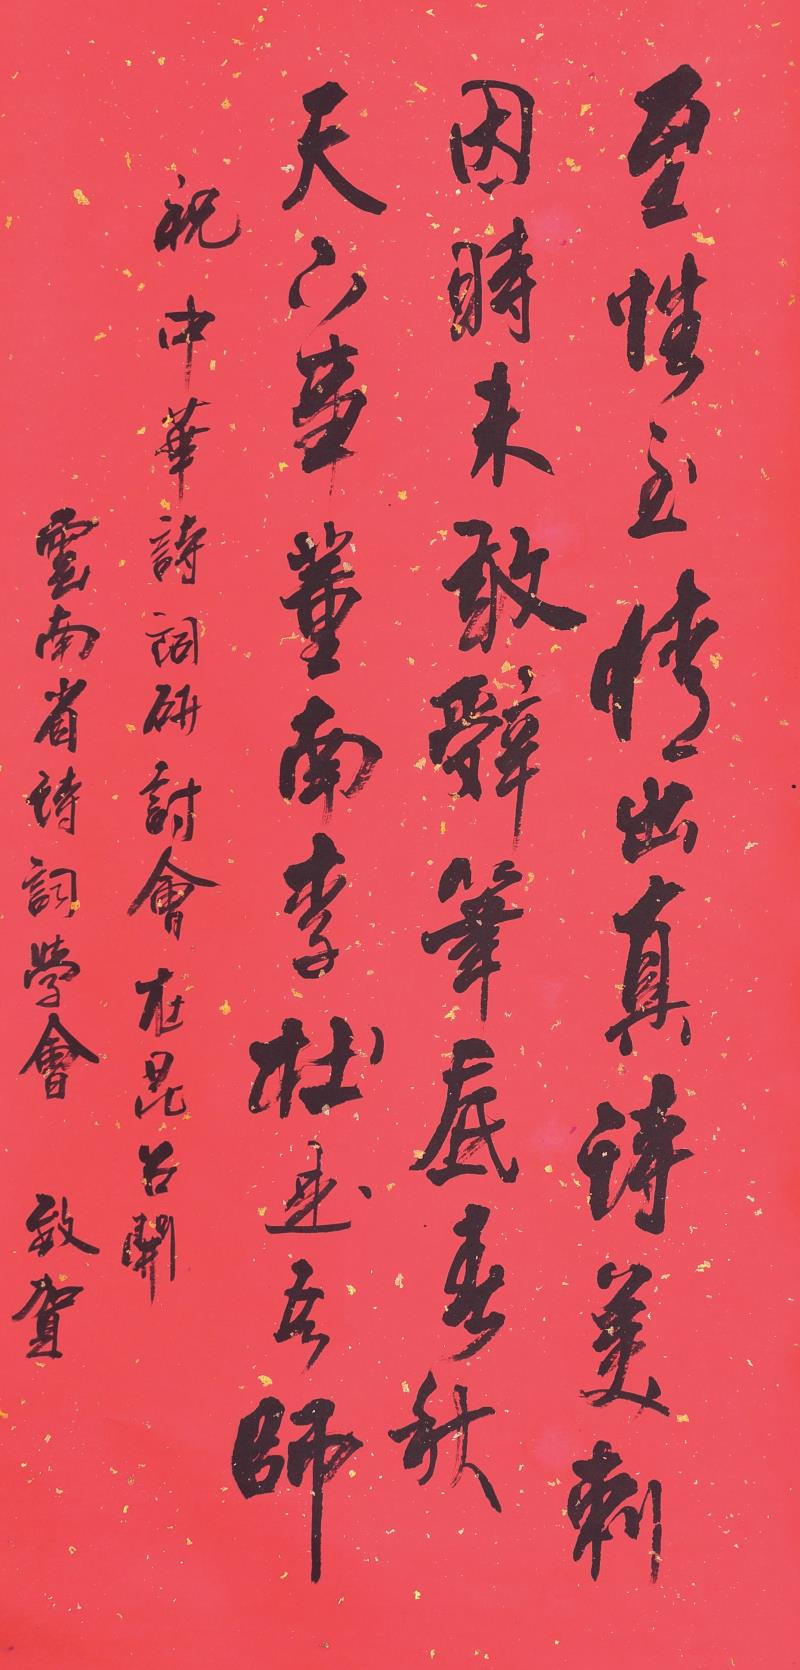 至性至情出真诗美刺
因時未敢辭筆底春秋
天下事董南李杜是吾師
祝中華詩詞研討會在昆召開
雲南省诗詞學會 致賀